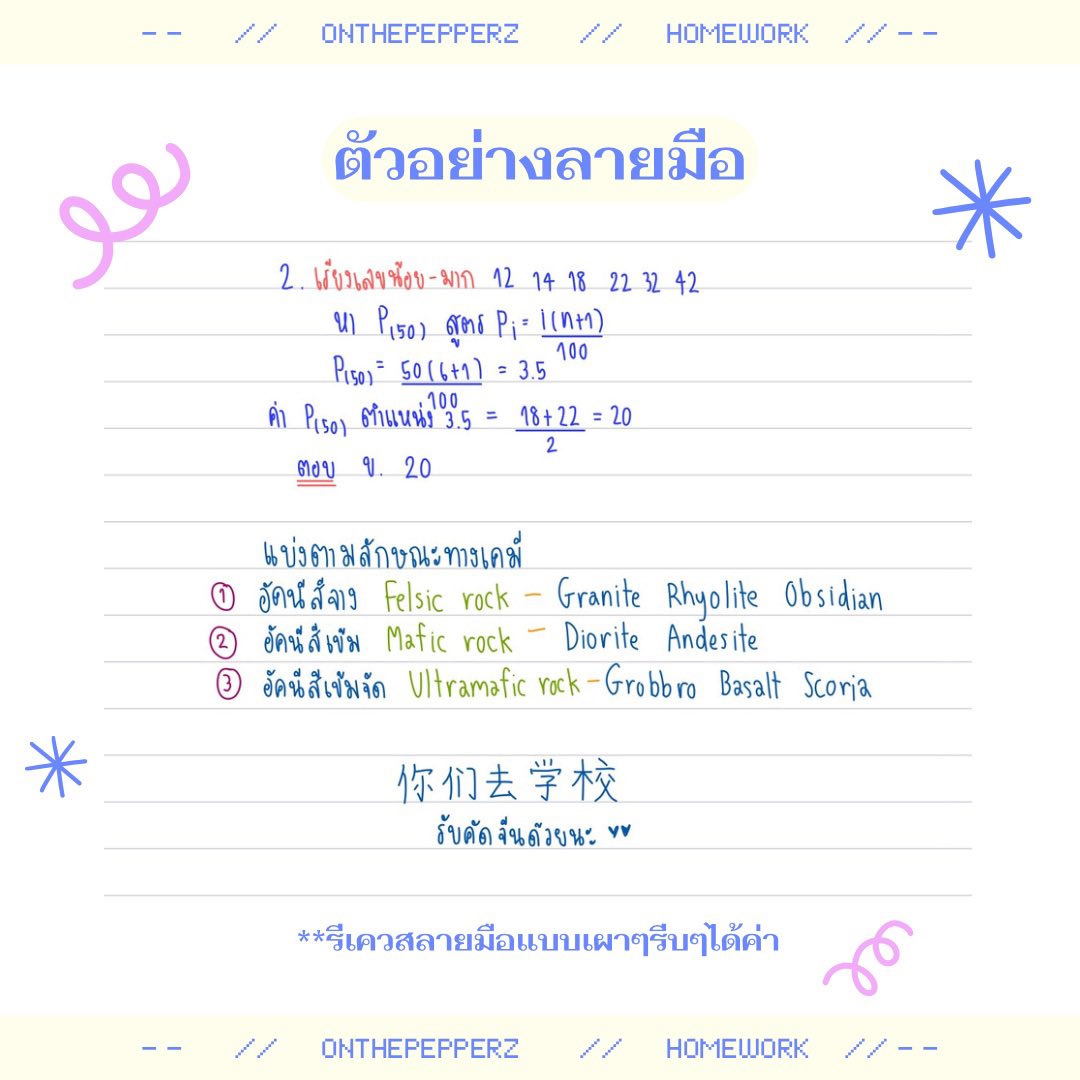 -- // ONTHEPEPPERZ // HOMEWORK // --
ตัวอย่างลายมือ
2. เรียงเลขน้อย-มาก 12 14 18 22 32 42
หา P(50) สูตร Pi = i(n+1)/100
P(50) = 50(6+1)/100 = 3.5
ค่า P(50) ตำแหน่ง 3.5 = 18+22/2 = 20
ตอบ ข. 20
แบ่งตามลักษณะทางเคมี
① อัคนีสีจาง Felsic rock - Granite Rhyolite Obsidian
② อัคนีสีเข้ม Mafic rock - Diorite Andesite
③ อัคนีสีเข้มจัด Ultramafic rock - Grobbro Basalt Scoria
你们去学校
รับคัดจีนด้วยนะ ♥♥
**รีเควสลายมือแบบเผาๆรีบๆได้ค่า
-- // ONTHEPEPPERZ // HOMEWORK // --